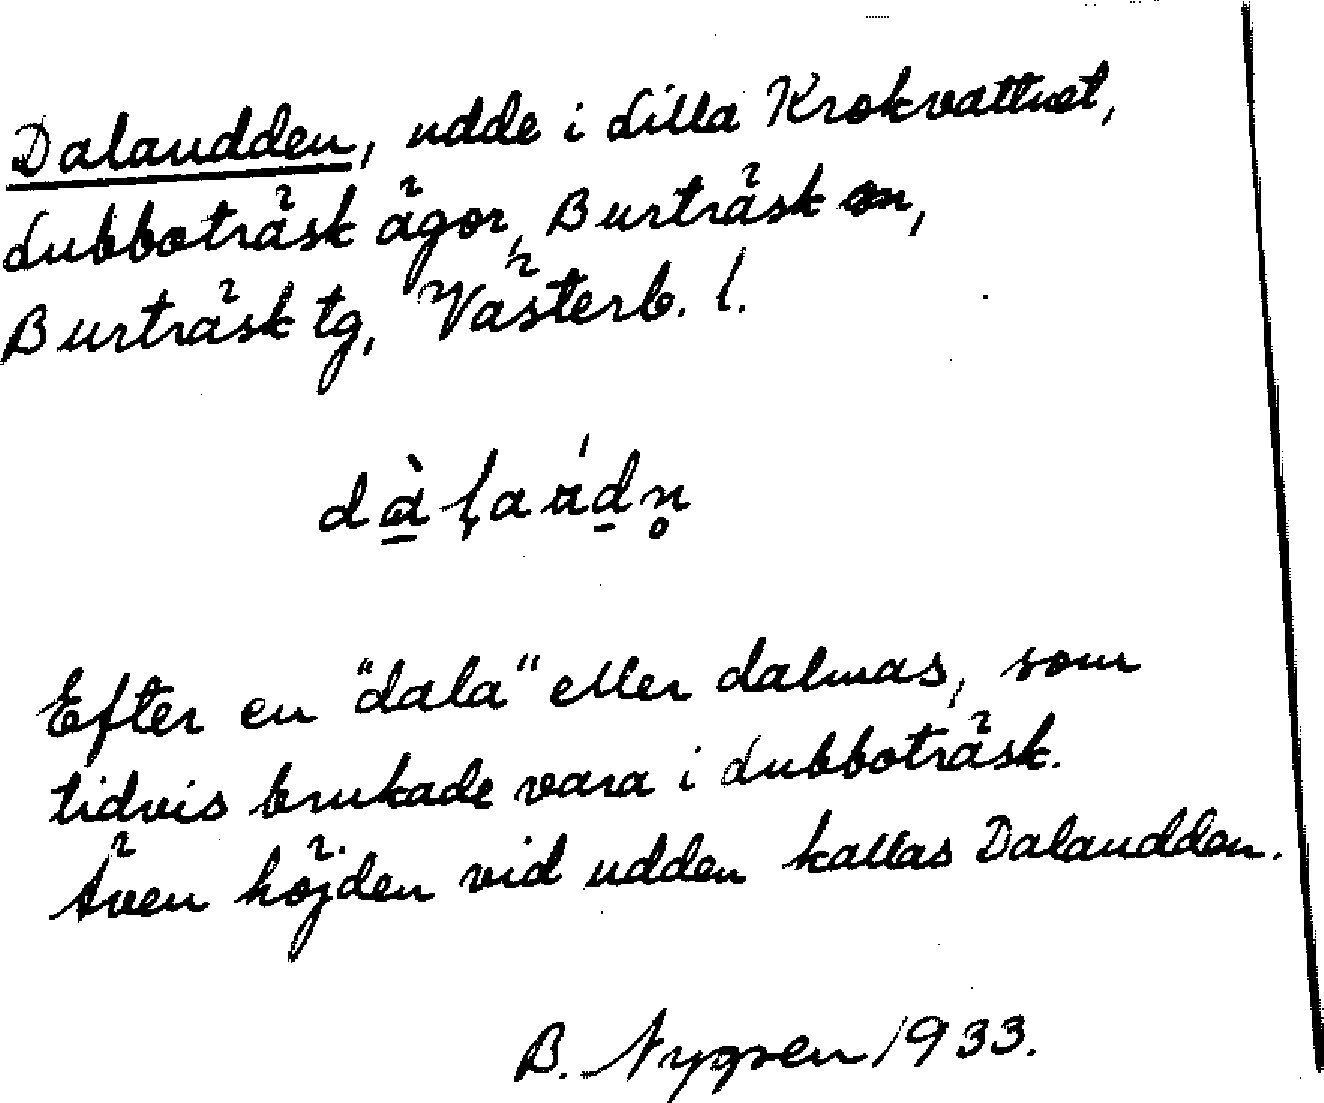 Dalaudden, udde i Lilla Krokvattnet,
Lubboträsk ägor, Burträsk sn,
Burträsk tg, Västerb. l.
dà̱ḷaúḏn̥
Efter en "dala" eller dalmas, som
tidvis brukade vara i Lubboträsk.
Även höjden vid udden kallas Dalaudden.
B. Nygren 1933.